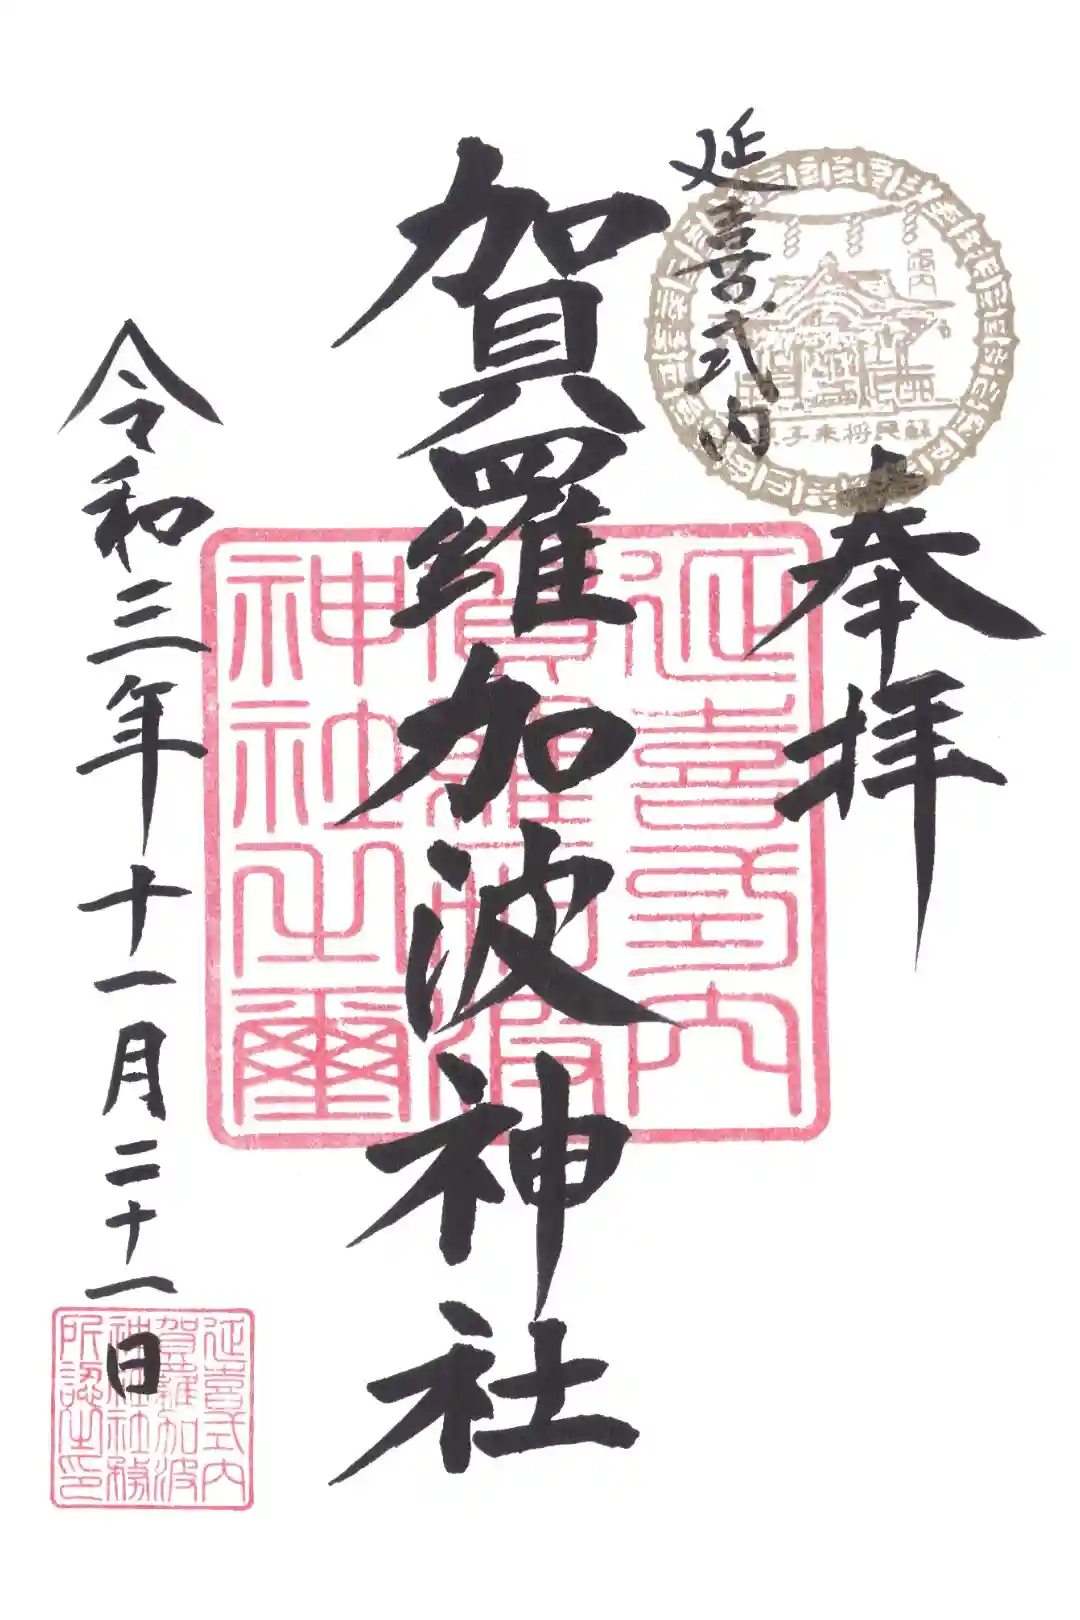 奉拝
延喜式内
賀羅加波神社
令和三年十一月二十一日
蘇民将来子
延喜式内
賀羅加波
神社之璽
延喜式内
賀羅加波
神社社務
所認之印